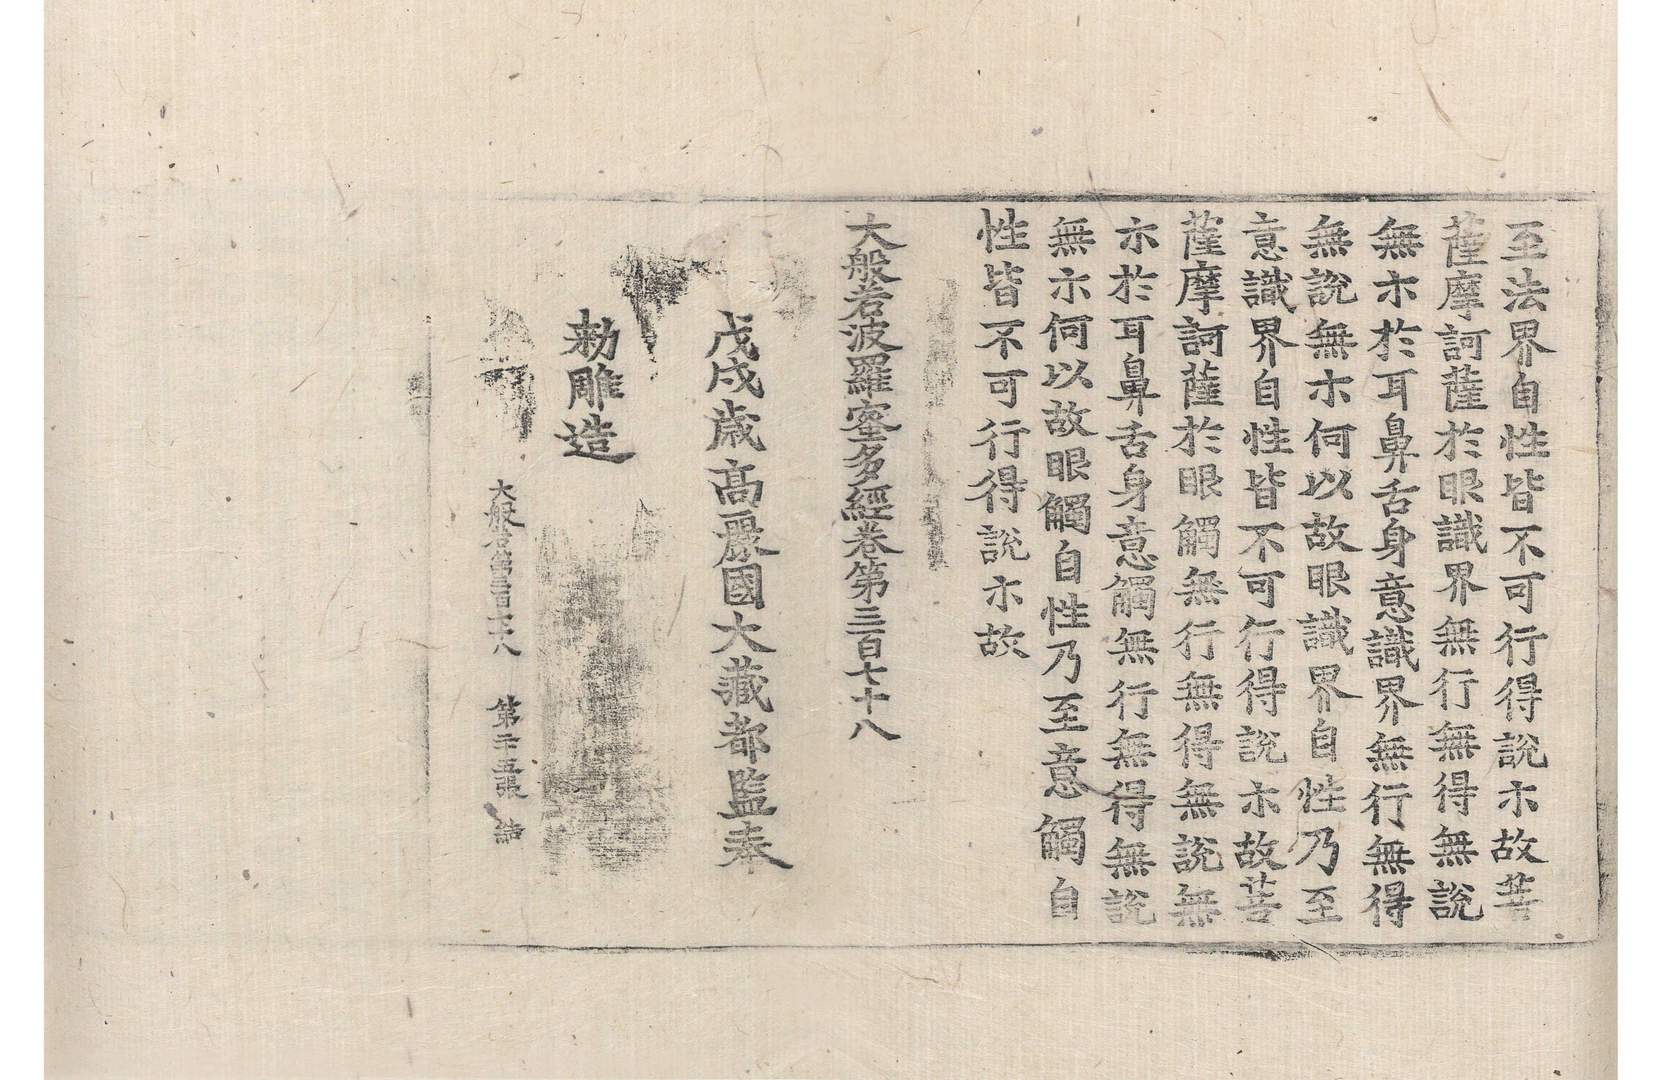 至法界自性皆不可行得說尒故菩
薩摩訶薩於眼識界無行無得無說
無尒於耳鼻舌身意識界無行無得
無說無尒何以故眼識界自性乃至
意識界自性皆不可行得說尒故菩
薩摩訶薩於眼觸無行無得無說無
尒於耳鼻舌身意觸無行無得無說
無尒何以故眼觸自性乃至意觸自
性皆不可行得說尒故
大般若波羅蜜多經卷第三百七十八
戊戌歲高麗國大藏都監奉
勅雕造
大般若第三百七十八 第二十五張